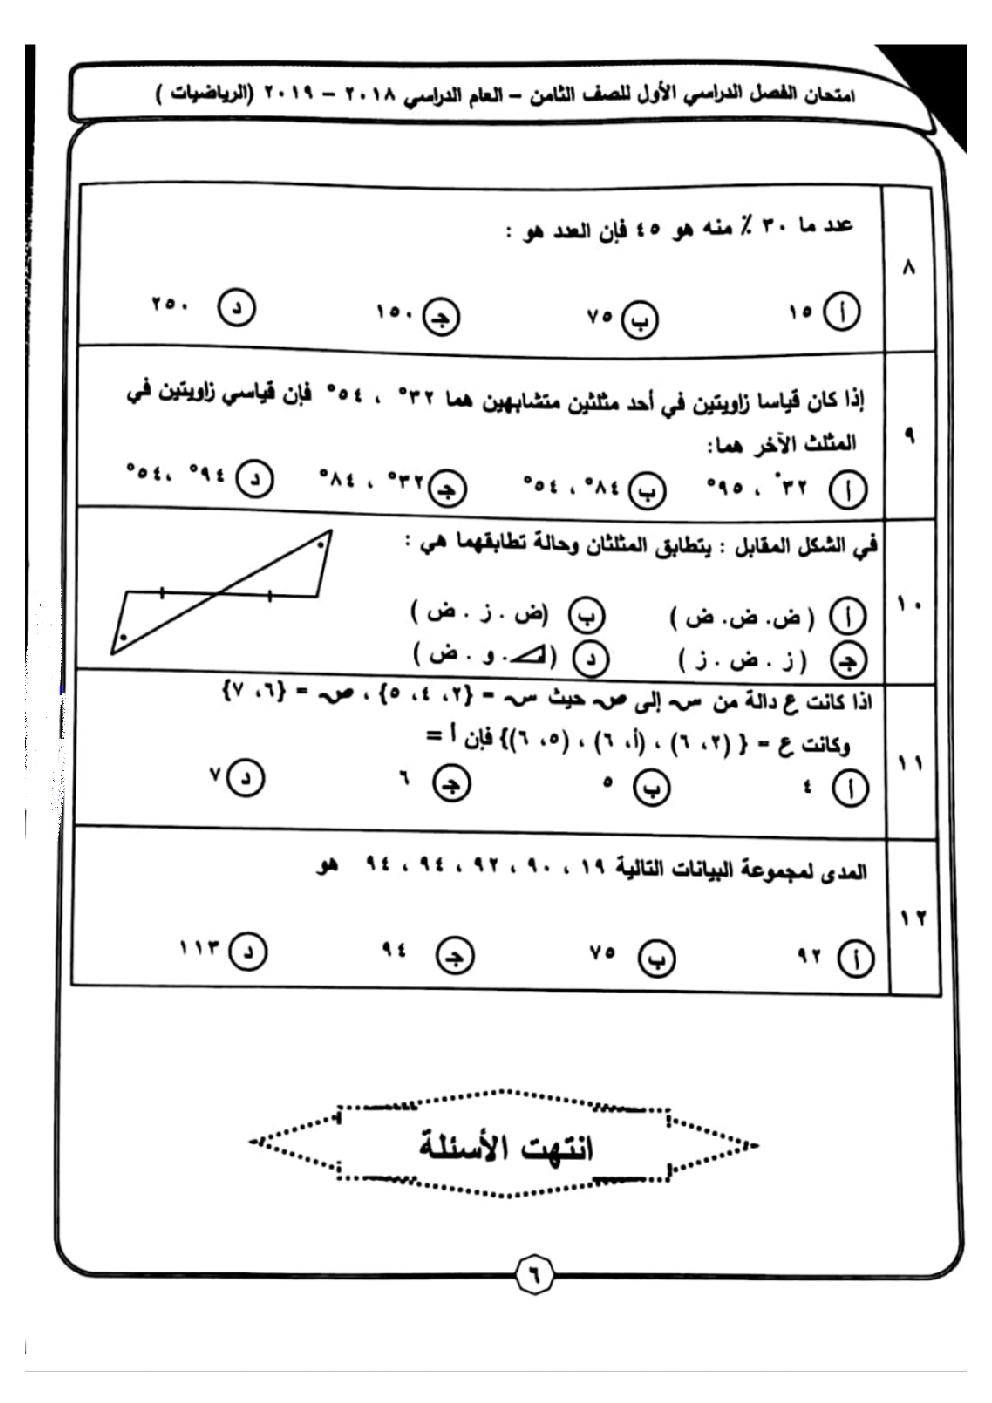 امتحان الفصل الدراسي الأول للصف الثامن – العام الدراسي ٢٠١٨ – ٢٠١٩ (الرياضيات )
٨
عدد ما ٣٠ ٪ منه هو ٤٥ فإن العدد هو :
أ ١٥ ب ٧٥ جـ ١٥٠ د ٢٥٠
٩
إذا كان قياسا زاويتين في أحد مثلثين متشابهين هما ٣٢° ، ٥٤° فإن قياسي زاويتين في
المثلث الآخر هما:
أ ٣٢° ، ٩٥° ب ٨٤° ، ٥٤° جـ ٣٢° ، ٨٤° د ٩٤° ،٥٤°
١٠
في الشكل المقابل : يتطابق المثلثان وحالة تطابقهما هي :
أ ( ض. ض. ض ) ب (ض . ز . ض )
جـ ( ز . ض . ز ) د ( . و . ض )
١١
اذا كانت ع دالة من سـ إلى صـ حيث سـ = {٢، ٤، ٥} ، صـ = {٦، ٧}
وكانت ع = { (٢، ٦) ، (أ، ٦) ، (٥، ٦)} فإن أ =
أ ٤ ب ٥ جـ ٦ د ٧
١٢
المدى لمجموعة البيانات التالية ١٩ ، ٩٠ ، ٩٢ ، ٩٤ ، ٩٤ هو
أ ٩٢ ب ٧٥ جـ ٩٤ د ١١٣
انتهت الأسئلة
٦